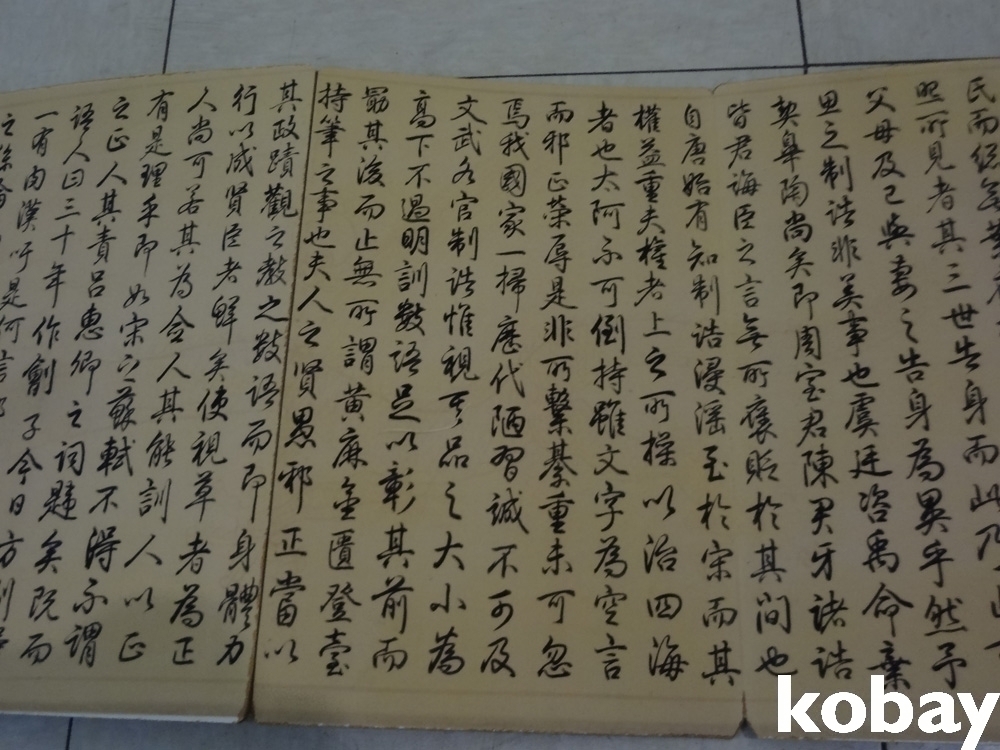 民而
照所見者其三世告身而此乃
父母及己與妻之告身為異乎然予
思之制誥非美事也虞廷咨禹命棄
契皋陶尚矣即周室君陳君牙諸誥
皆君誨臣之言無所褒貶於其間也
自唐始有知制誥浸淫至於宋而其
權益重夫權者上之所操以治四海
者也太阿不可倒持雖文字為空言
而邪正榮辱是非所繫綦重未可忽
焉我國家一掃歷代陋習誠不可及
文武各官制誥惟視其品之大小為
高下不過明訓數語足以彰其前而
勗其後而止無所謂黃麻金匱登臺
持筆之事也夫人之賢愚邪正當以
其政蹟觀之教之數語而即身體力
行以成賢臣者鮮矣使視草者為正
人尚可若其為僉人其能訓人以正
有是理乎即如宋之蘇軾不得不謂
之正人其責呂惠卿之詞韙矣既而
語人曰三十年作劊子今日方剮
一有肉漢吁是何言